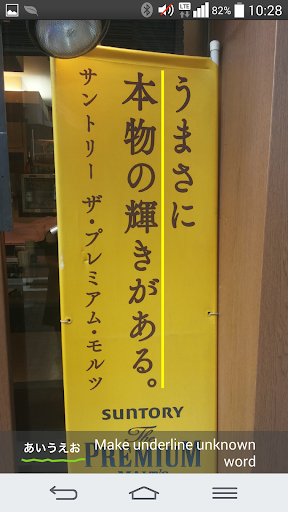 82% 10:28
うまさに
本物の輝きがある。
サントリー ザ・プレミアム・モルツ
SUNTORY
The
PREMIUM
MALT'S
あいうえお
Make underline unknown
word